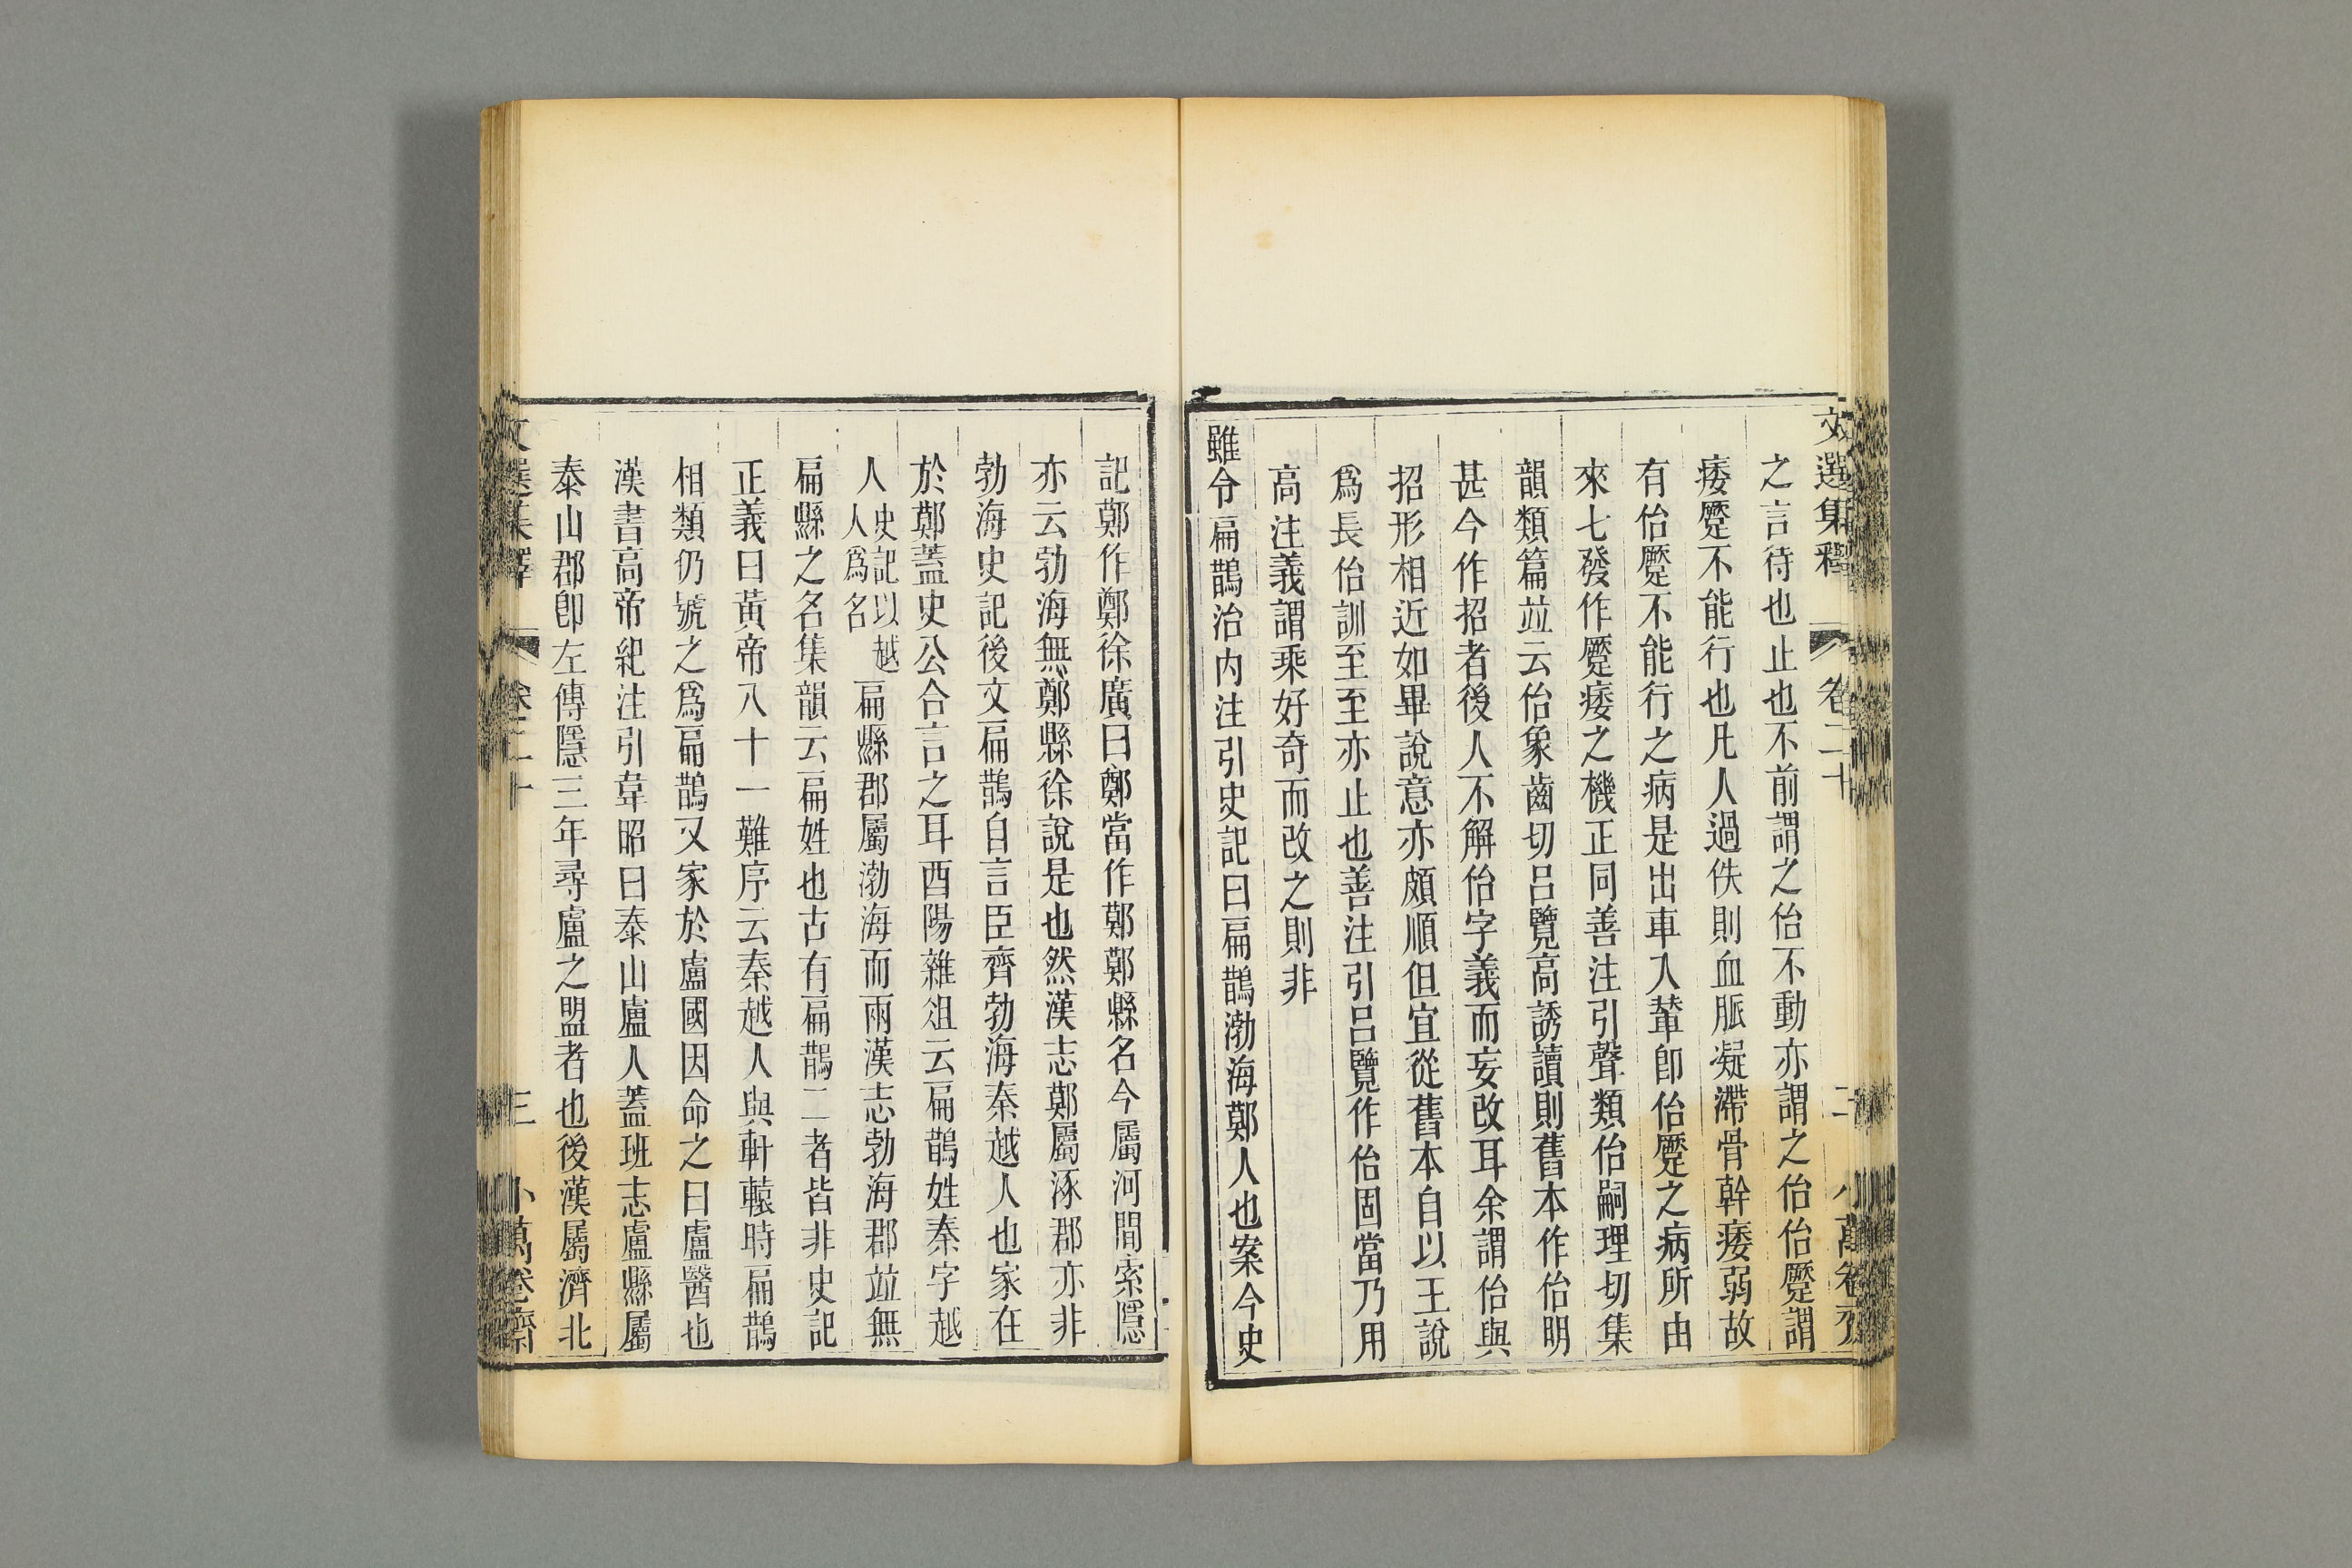 文選集釋 卷二十 二 小萬卷齋
之言待也止也不前謂之佁不動亦謂之佁佁蹷謂
痿蹷不能行也凡人過佚則血脈凝滯骨幹痿弱故
有佁蹷不能行之病是出車入輦卽佁蹷之病所由
來七發作蹷痿之機正同善注引聲類佁嗣理切集
韻類篇竝云佁象齒切呂覽高誘讀則舊本作佁明
甚今作招者後人不解佁字義而妄改耳余謂佁與
招形相近如畢說意亦頗順但宜從舊本自以王說
爲長佁訓至至亦止也善注引呂覽作佁固當乃用
高注義謂乘好奇而改之則非
雖令扁鵲治內注引史記曰扁鵲渤海鄭人也案今史
記鄭作鄭徐廣曰鄭當作鄚鄚縣名今屬河間索隱
亦云勃海無鄭縣徐說是也然漢志鄚屬涿郡亦非
勃海史記後文扁鵲自言臣齊勃海秦越人也家在
於鄭蓋史公合言之耳酉陽雜俎云扁鵲姓秦字越
人史記以越人爲名扁縣郡屬渤海而兩漢志勃海郡竝無
扁縣之名集韻云扁姓也古有扁鵲二者皆非史記
正義曰黃帝八十一難序云秦越人與軒轅時扁鵲
相類仍號之爲扁鵲又家於盧國因命之曰盧醫也
漢書高帝紀注引韋昭曰泰山盧人蓋班志盧縣屬
泰山郡卽左傳隱三年尋盧之盟者也後漢屬濟北
文選集釋 卷二十 三 小萬卷齋